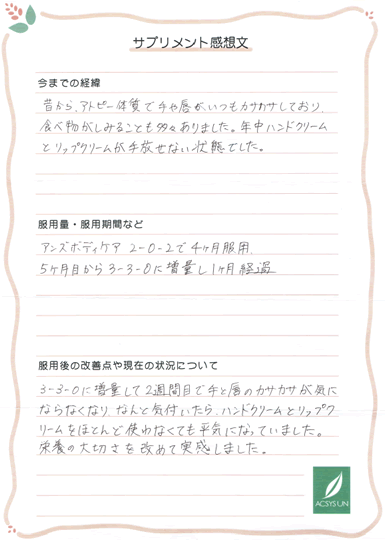 サプリメント感想文
今までの経緯
昔から、アトピー体質で手や唇がいつもカサカサしており、
食べ物がしみることも多々ありました。年中ハンドクリーム
とリップクリームが手放せない状態でした。
服用量・服用期間など
アンズボディケア 2-0-2で4ヶ月服用、
5ヶ月目から3-3-0に増量し1ヶ月経過
服用後の改善点や現在の状況について
3-3-0に増量して2週間目で手と唇のカサカサが気に
ならなくなり、なんと気付いたら、ハンドクリームとリップク
リームをほとんど使わなくても平気になっていました。
栄養の大切さを改めて実感しました。
ACSYS UN